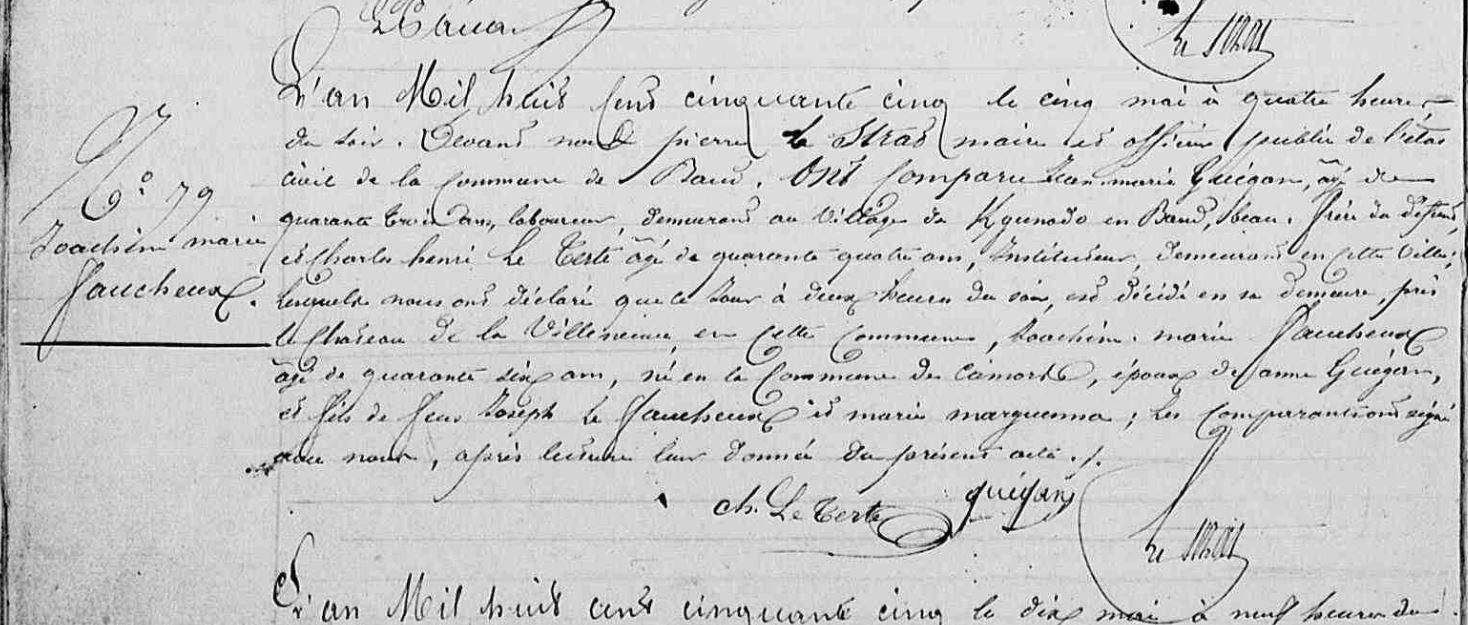 Le Strat
L'an Mil huit cent cinquante cinq le cinq mai à quatre heures
du soir. Devant nous pierre le Strat maire et officier public de l'état
civil de la Commune de Baud. Ont Comparu Jean marie Guégan, âgé de
N° 79
quarante trois ans, laboureur, demeurant au Village de en Baud, beau. frère du défunt,
Joachim marie
et Charles henri Le Terte âgé de quarante quatre ans, Instituteur, demeurant en cette Ville;
faucheux.
Lesquels nous ont déclaré que ce Jour à deux heures du soir, est décédé en sa demeure, près
le Château de la Villeneuve, en cette Commune, Joachim. marie faucheux
âgé de quarante six ans, né en la Commune de Camors, époux de anne Guégan,
et fils de feus Joseph Le faucheux et marie ; Les Comparants ont signé
avec nous, après lecture leur donnée du présent acte ./.
ch. Le Terte guégan
Le Strat
L'an Mil huit cent cinquante cinq le dix mai à neuf heures du